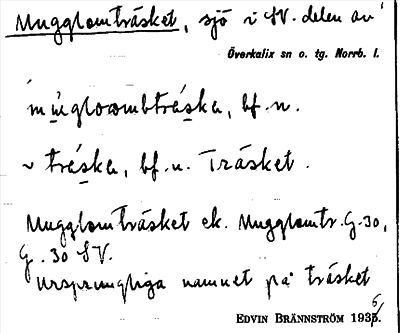 Mugglomträsket, sjö i SV. delen av
Överkalix sn o. tg. Norrb. l.
múgloombtrása, bf. n.
~ tréska, bf. n. Träsket.
Mugglomträsket ek. Mugglomtr. G. 30,
G. 30 SV.
Ursprungliga namnet på träsket
EDVIN BRÄNNSTRÖM 1936.